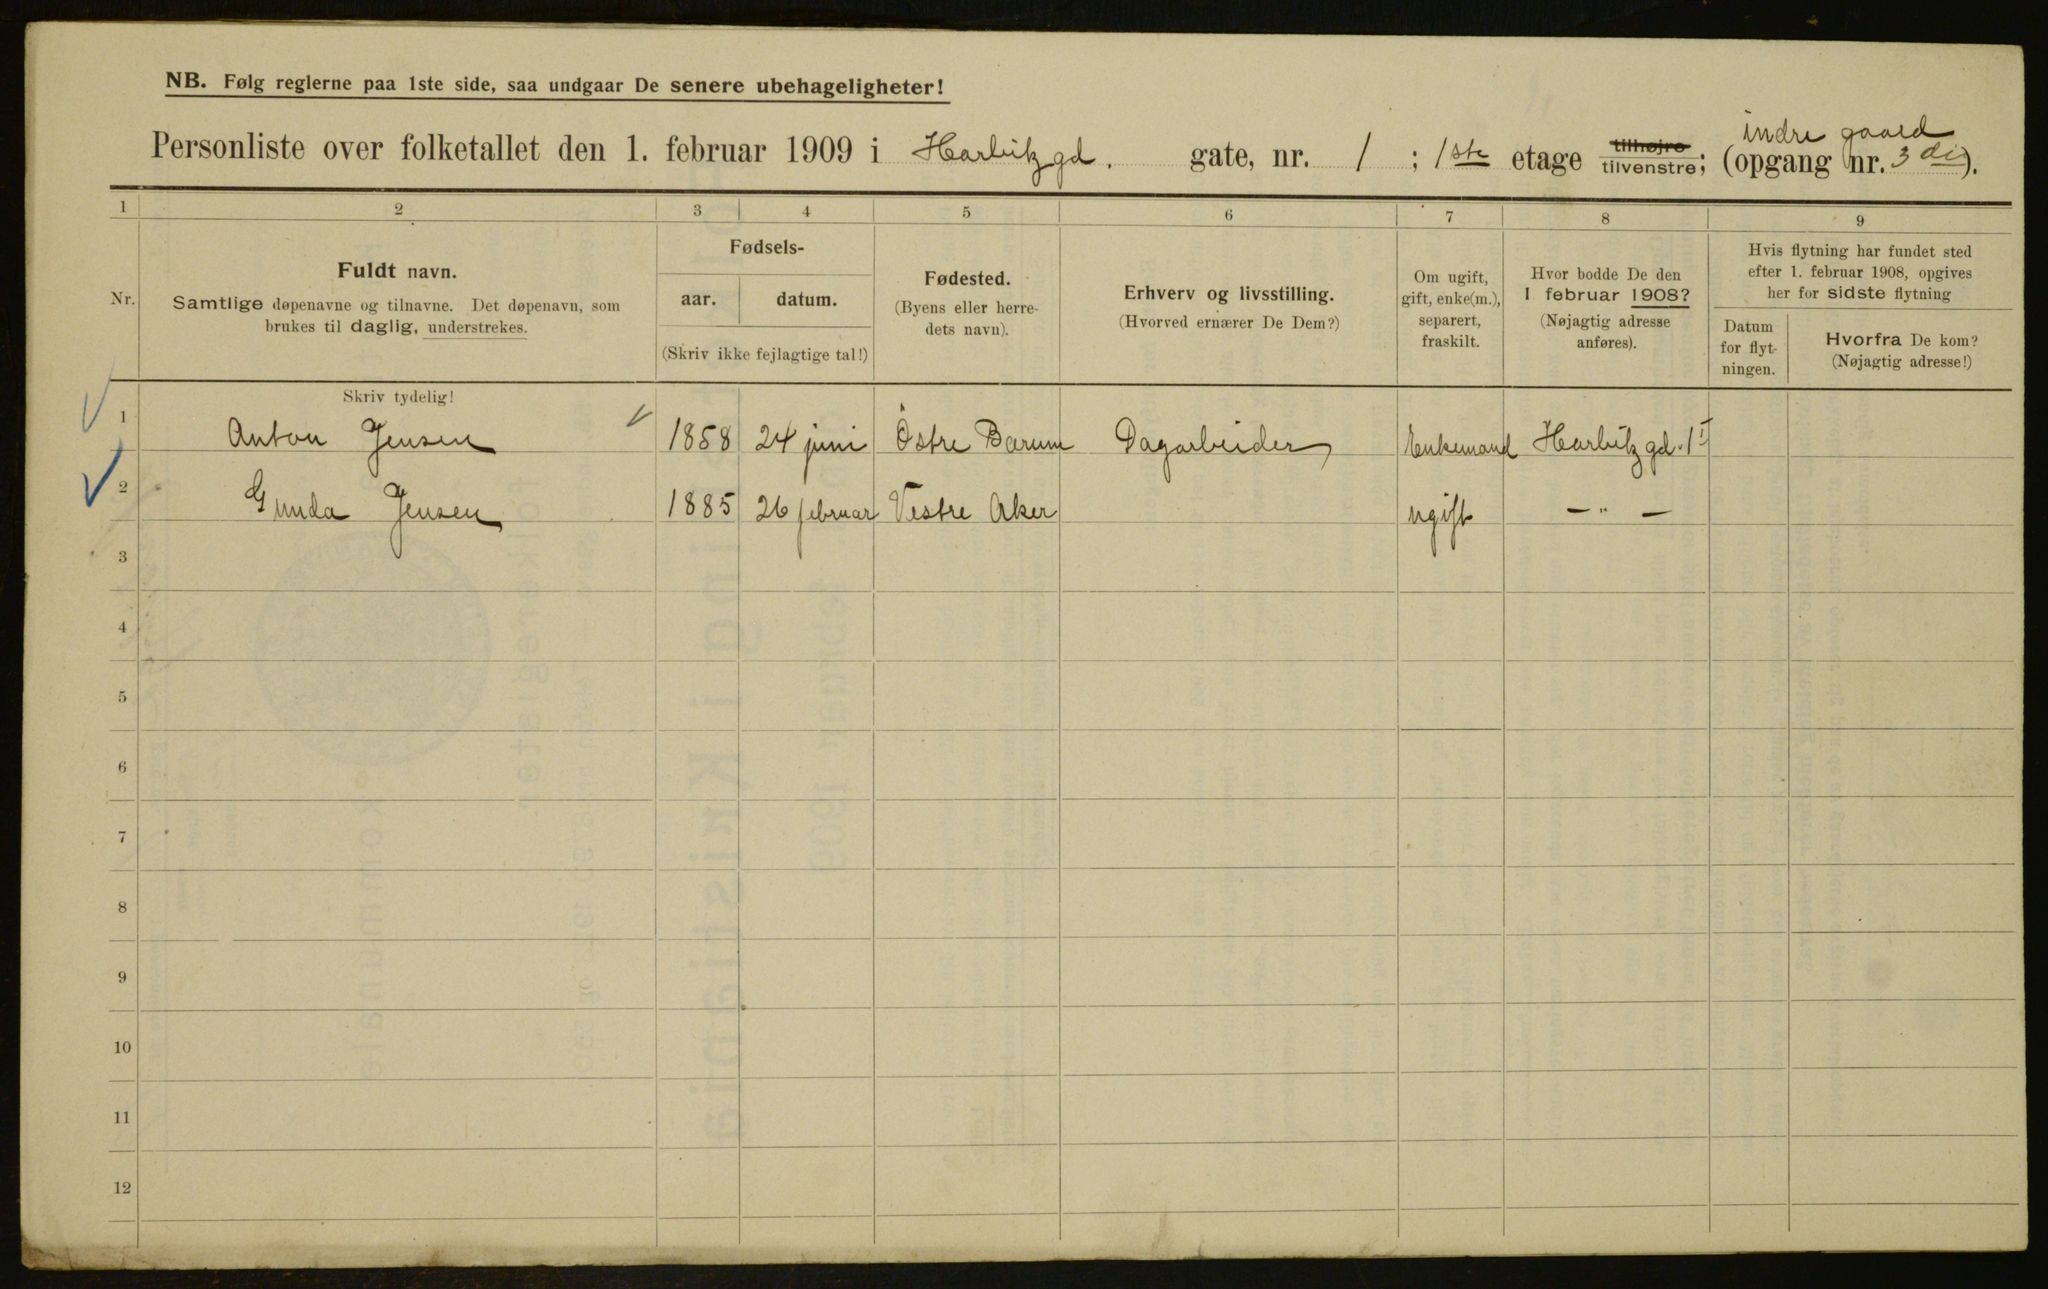 NB. Følg reglerne paa 1ste side, saa undgaar De senere ubehageligheter!
indre gaard
Personliste over folketallet den 1. februar 1909 i Harbitzgd. gate, nr. 1 ; 1ste etage tilhøjre tilvenstre; (opgang nr. 3 di).
1 2 3 4 5 6 7 8 9
Nr.
Fuldt navn.
Samtlige døpenavne og tilnavne. Det døpenavn, som
brukes til daglig, understrekes.
Fødsels-
aar. datum.
(Skriv ikke fejlagtige tal!)
Fødested.
(Byens eller herre-
dets navn).
Erhverv og livsstilling.
(Hvorved ernærer De Dem?)
Om ugift,
gift, enke(m.),
separert,
fraskilt.
Hvor bodde De den
1 februar 1908?
(Nøjagtig adresse
anføres).
Hvis flytning har fundet sted
efter 1. februar 1908, opgives
her for sidste flytning
Datum
for flyt-
ningen.
Hvorfra De kom?
(Nøjagtig adresse!)
Skriv tydelig!
1 Anton Jensen 1858 24 juni Östre Bærum Dagarbeider Enkemand Harbitzgd. 1 I
2 Gunda Jensen 1885 26 februar Vestre Aker ugift — " —
3
4
5
6
7
8
9
10
11
12